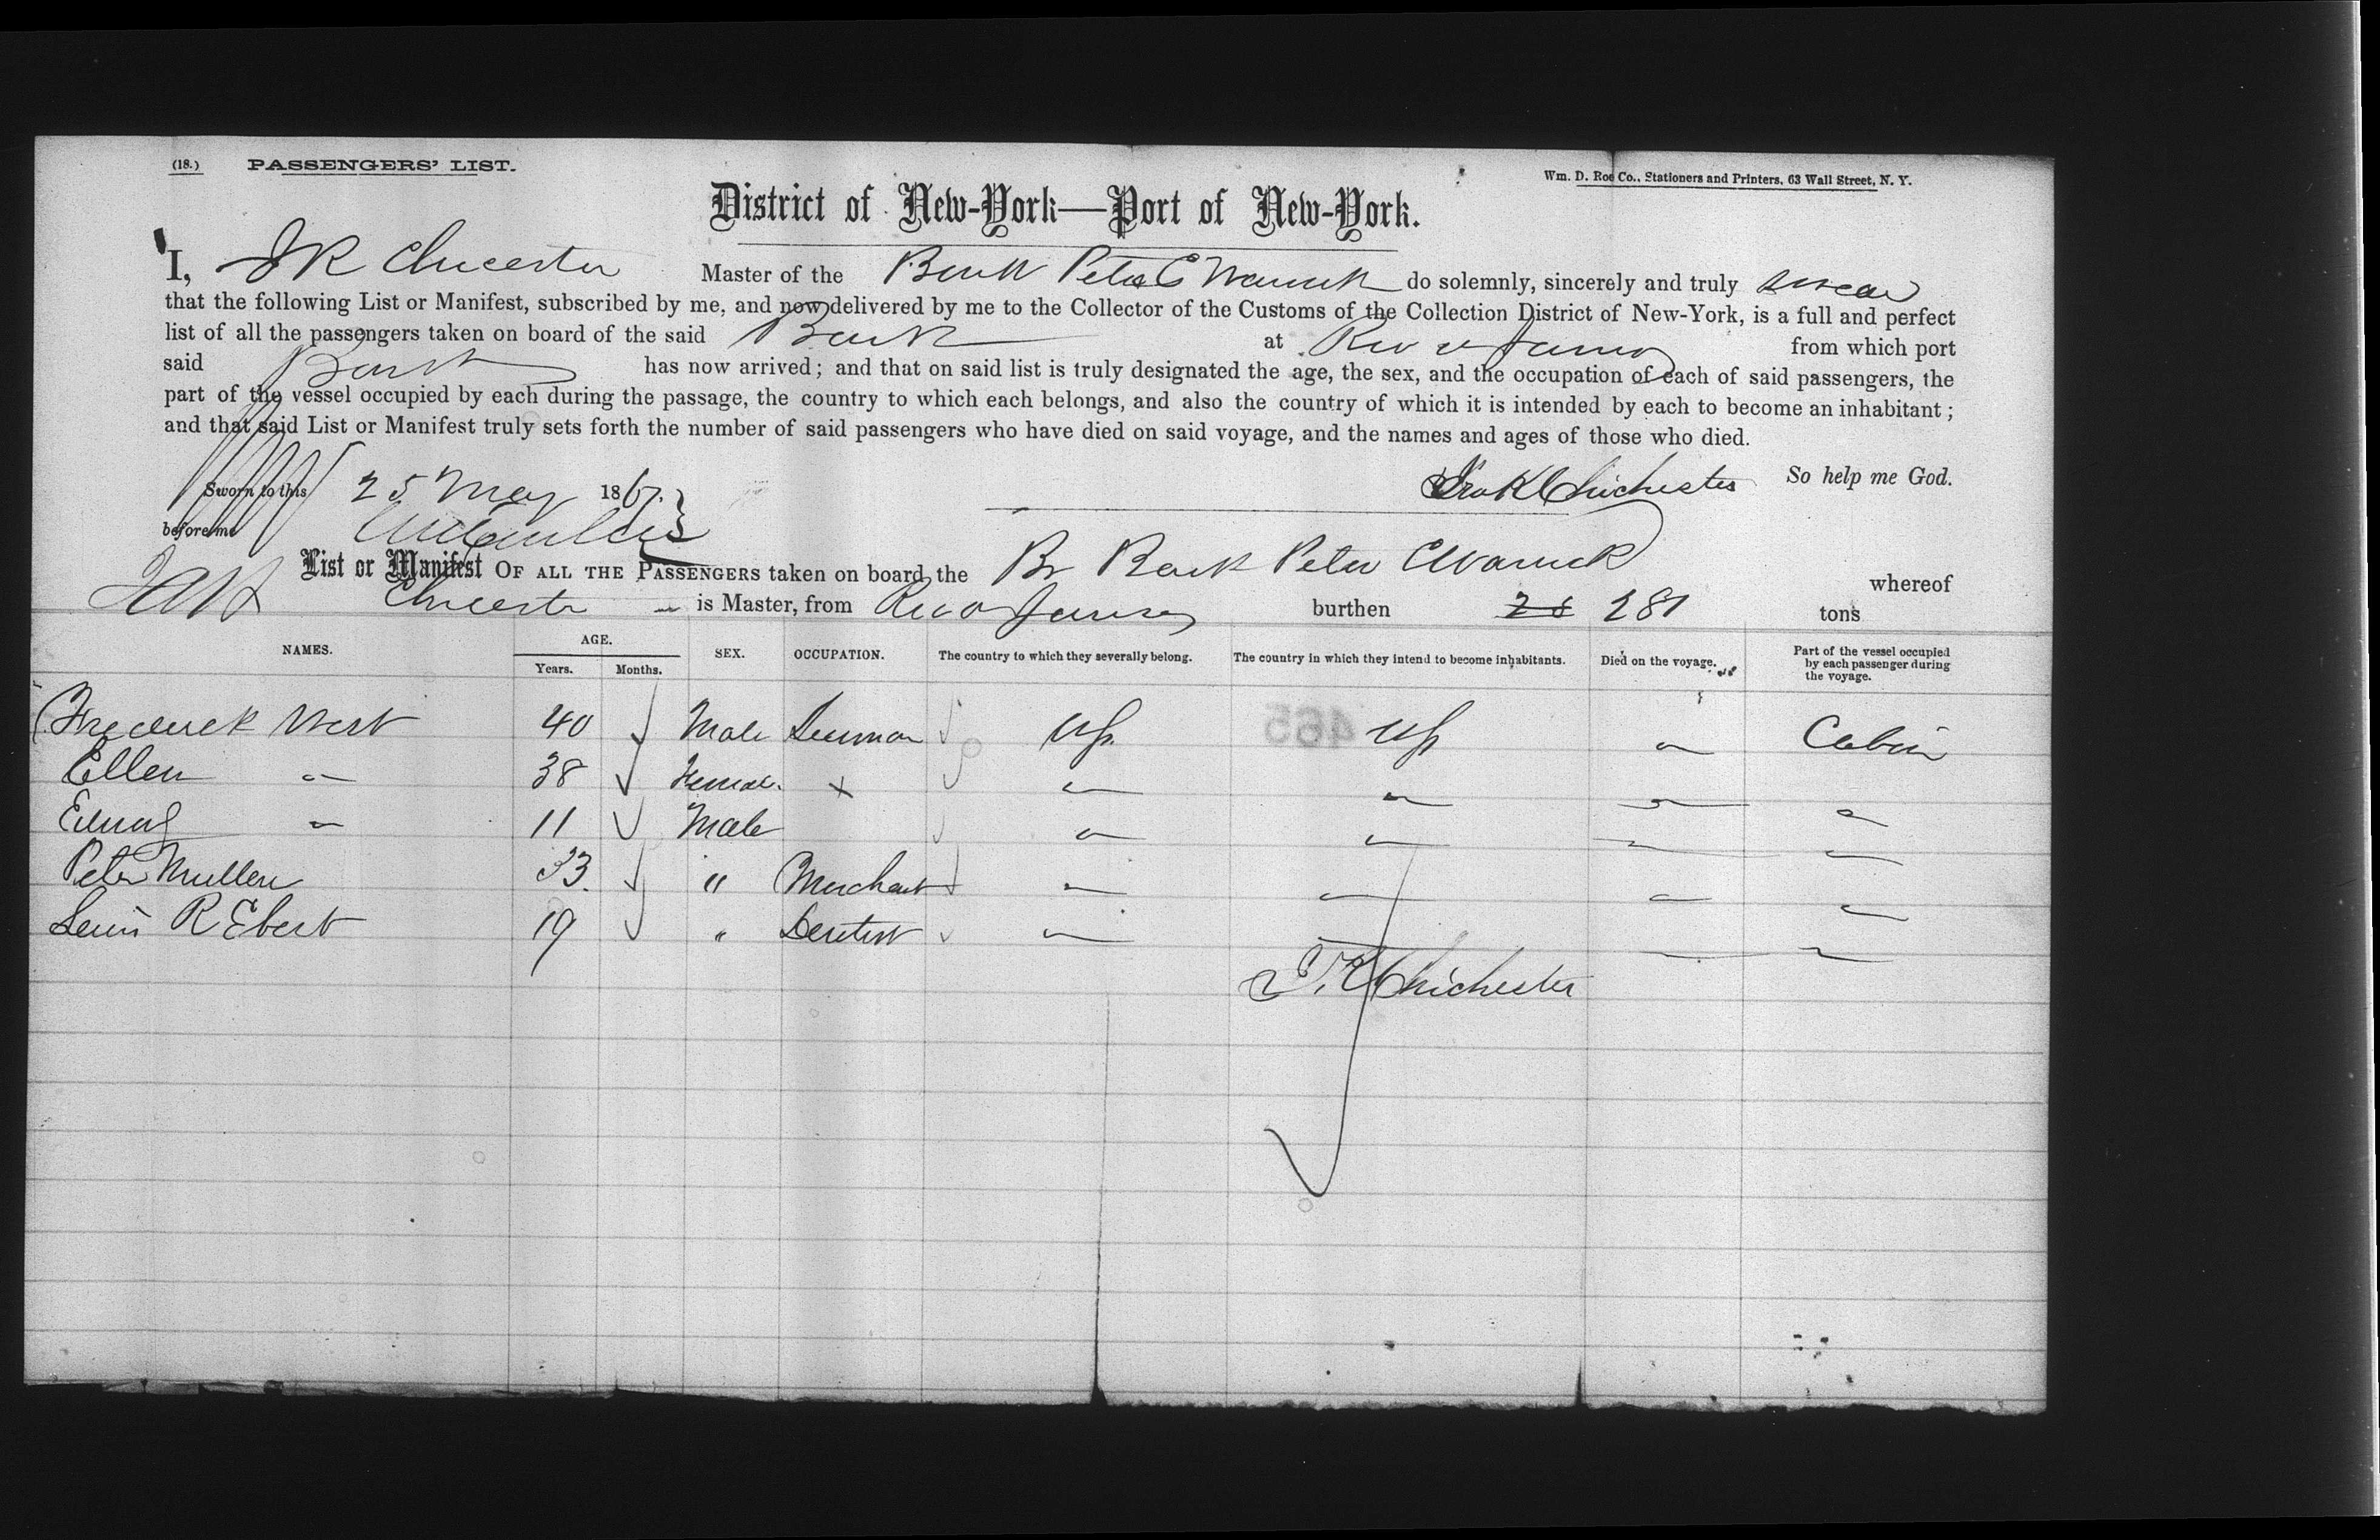 (18.) PASSENGERS' LIST.
Wm. D. Roe Co., Stationers and Printers, 63 Wall Street, N. Y.
District of New-York—Port of New-York.
I, J R Chicester Master of the Bark Peter C Warwick do solemnly, sincerely and truly swear
that the following List or Manifest, subscribed by me, and now delivered by me to the Collector of the Customs of the Collection District of New-York, is a full and perfect
list of all the passengers taken on board of the said Bark at Rio from which port
said Bark has now arrived; and that on said list is truly designated the age, the sex, and the occupation of each of said passengers, the
part of the vessel occupied by each during the passage, the country to which each belongs, and also the country of which it is intended by each to become an inhabitant;
and that said List or Manifest truly sets forth the number of said passengers who have died on said voyage, and the names and ages of those who died.
So help me God.
Sworn to this 25 May 1867. Chichester
before me
List or Manifest OF ALL THE PASSENGERS taken on board the Br Bark Peter C Warwick whereof
Chicester is Master, from Rio burthen 281 tons
NAMES. AGE. SEX. OCCUPATION. The country to which they severally belong. The country in which they intend to become inhabitants. Died on the voyage. Part of the vessel occupied by each passenger during the voyage.
Years. Months.
Frederick West 40 Male US. 465 US Cabin
Ellen " 38 Female. x " " " "
" 11 Male " " " "
Peter Mullen 33. " Merchant " " " "
R Ebert 19 " Dentist " " " "
Chichester